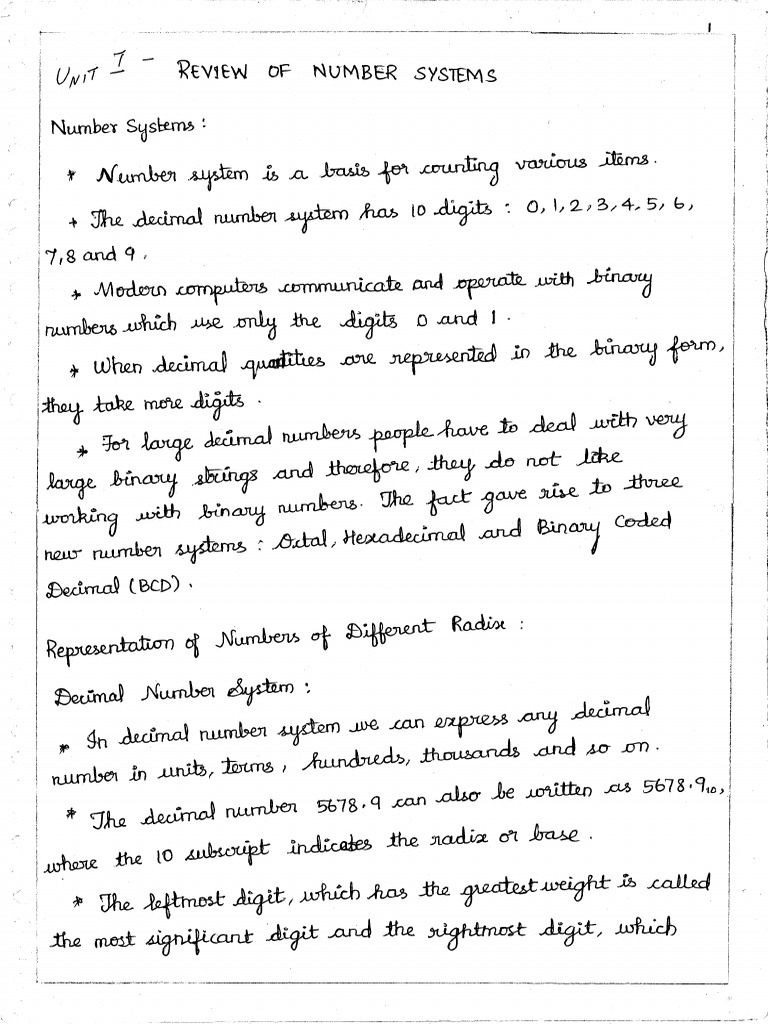 1
UNIT I - REVIEW OF NUMBER SYSTEMS
Number Systems :
* Number system is a basis for counting various items.
* The decimal number system has 10 digits : 0, 1, 2, 3, 4, 5, 6,
7, 8 and 9.
* Modern computers communicate and operate with binary
numbers which use only the digits 0 and 1.
* When decimal quantities are represented in the binary form,
they take more digits.
* For large decimal numbers people have to deal with very
large binary strings and therefore, they do not like
working with binary numbers. The fact gave rise to three
new number systems : Octal, Hexadecimal and Binary Coded
Decimal (BCD).
Representation of Numbers of Different Radix :
Decimal Number System :
* In decimal number system we can express any decimal
number in units, terms, hundreds, thousands and so on.
* The decimal number 5678.9 can also be written as 5678.9₁₀,
where the 10 subscript indicates the radix or base.
* The leftmost digit, which has the greatest weight is called
the most significant digit and the rightmost digit, which